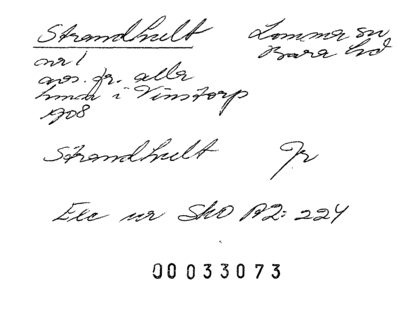 Strandhult Lomma sn
nr 1 Bara hd
avs. fr. alla
hmn i Vinstorp
1908
Strandhult Jr
Exc ur SkO A2: 224
00033073